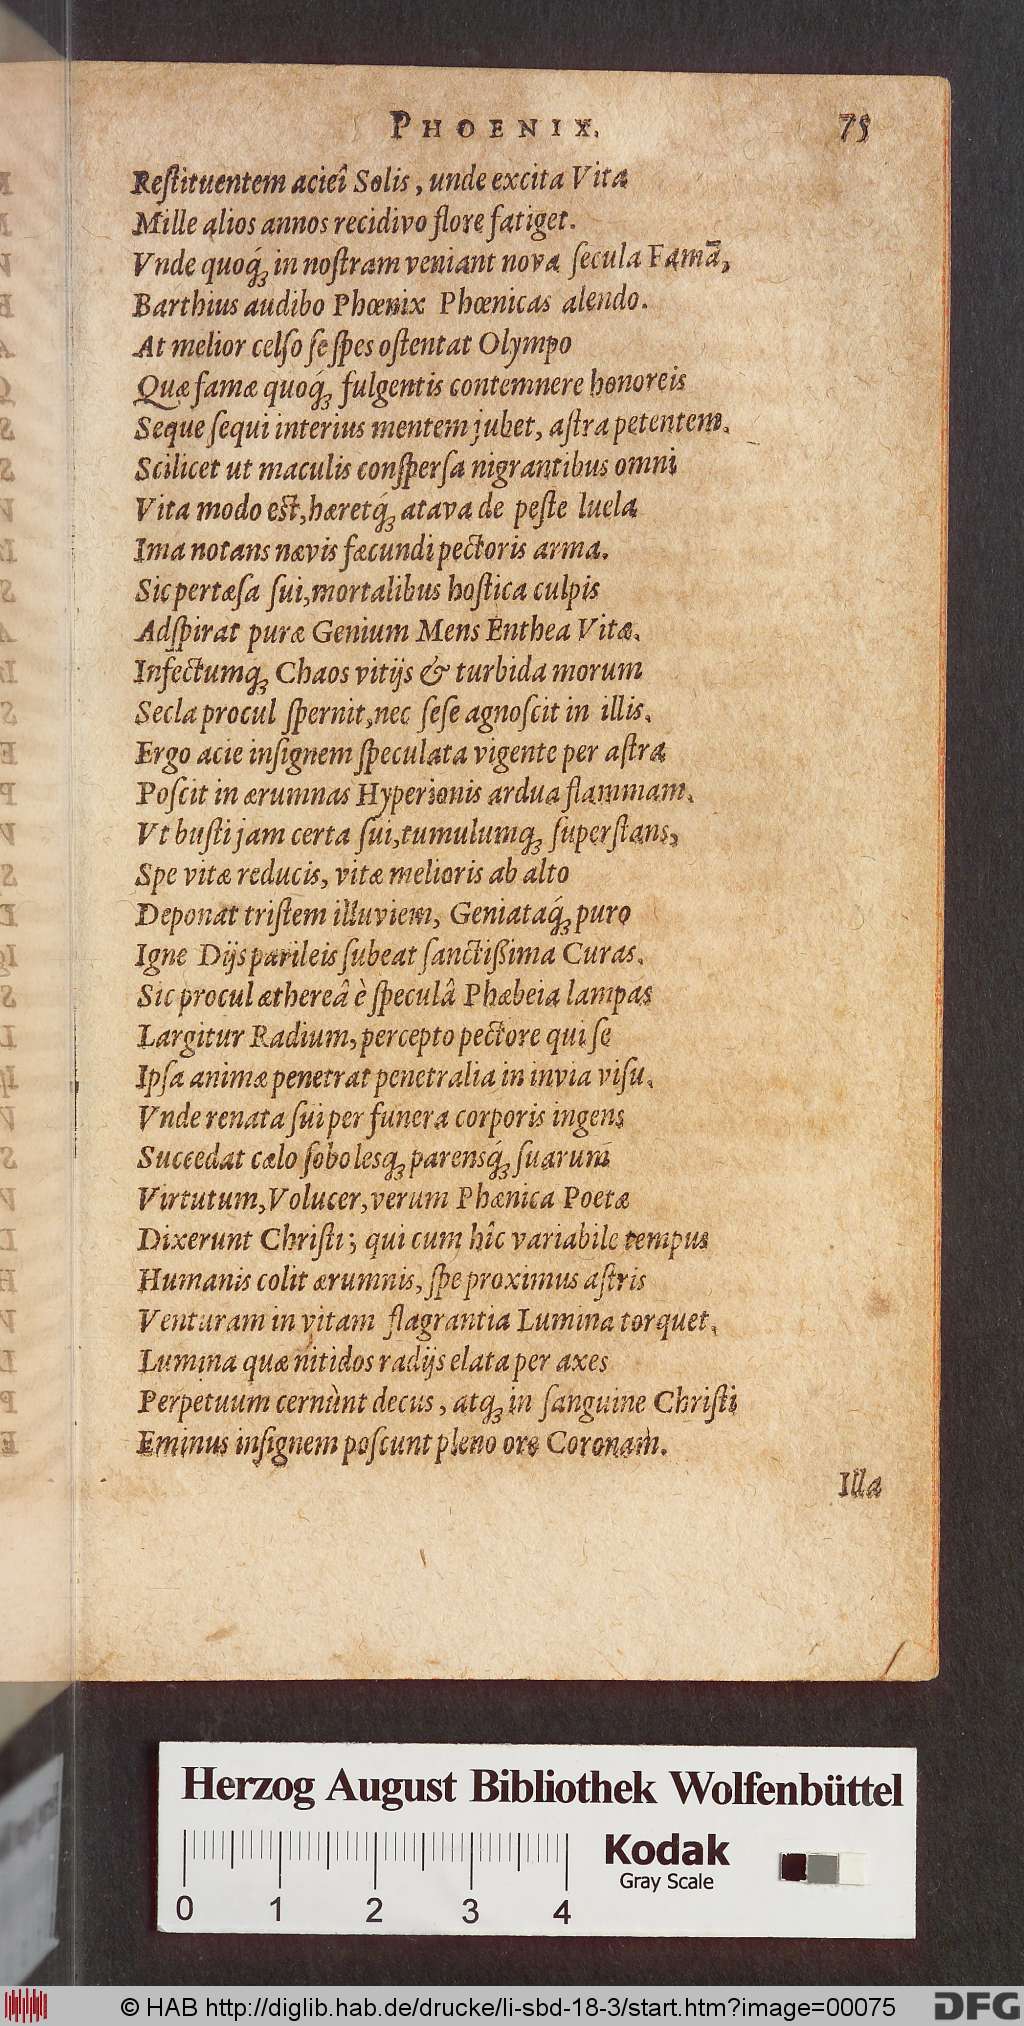 PHOENIX. 75
Reſtituentem acieî Solis, unde excita Vita
Mille alios annos recidivo flore fatiget.
Vnde quoq́ꝫ in noſtram veniant nova ſecula Famā,
Barthius audibo Phœnix Phœnicas alendo.
At melior celſo ſe ſpes oſtentat Olympo
Quæ famæ quoq́ꝫ fulgentis contemnere honoreis
Seque ſequi interius mentem jubet, aſtra petentem.
Scilicet ut maculis conſperſa nigrantibus omni
Vita modo eſt, hæretq́ꝫ atava de peſte luela
Ima notans nævis fæcundi pectoris arma.
Sic pertæſa ſui, mortalibus hoſtica culpis
Adſpirat puræ Genium Mens Enthea Vitæ.
Infectumqꝫ Chaos vitijs & turbida morum
Secla procul ſpernit, nec ſeſe agnoſcit in illis.
Ergo acie inſignem ſpeculata vigente per aſtra
Poſcit in ærumnas Hyperionis ardua flammam.
Vt buſti jam certa ſui, tumulumqꝫ ſuperſtans,
Spe vitæ reducis, vitæ melioris ab alto
Deponat triſtem illuviem, Geniataq́ꝫ puro
Igne Dijs parileis ſubeat ſanctißima Curas.
Sic procul æthereâ è ſpeculâ Phæbeia lampas
Largitur Radium, percepto pectore qui ſe
Ipſa animæ penetrat penetralia in invia viſu.
Vnde renata ſui per funera corporis ingens
Succedat cælo ſobolesqꝫ parensq́ꝫ ſuarum
Virtutum, Volucer, verum Phænica Poetæ
Dixerunt Chriſti; qui cum hîc variabile tempus
Humanis colit ærumnis, ſpe proximus aſtris
Venturam in vitam flagrantia Lumina torquet.
Lumina quæ nitidos radijs elata per axes
Perpetuum cernùnt decus, atqꝫ in ſanguine Chriſti
Eminus inſignem poſcunt pleno ore Coronam.
Illa
Herzog August Bibliothek Wolfenbüttel
Kodak
Gray Scale
0 1 2 3 4
© HAB http://diglib.hab.de/drucke/li-sbd-18-3/start.htm?image=00075 DFG